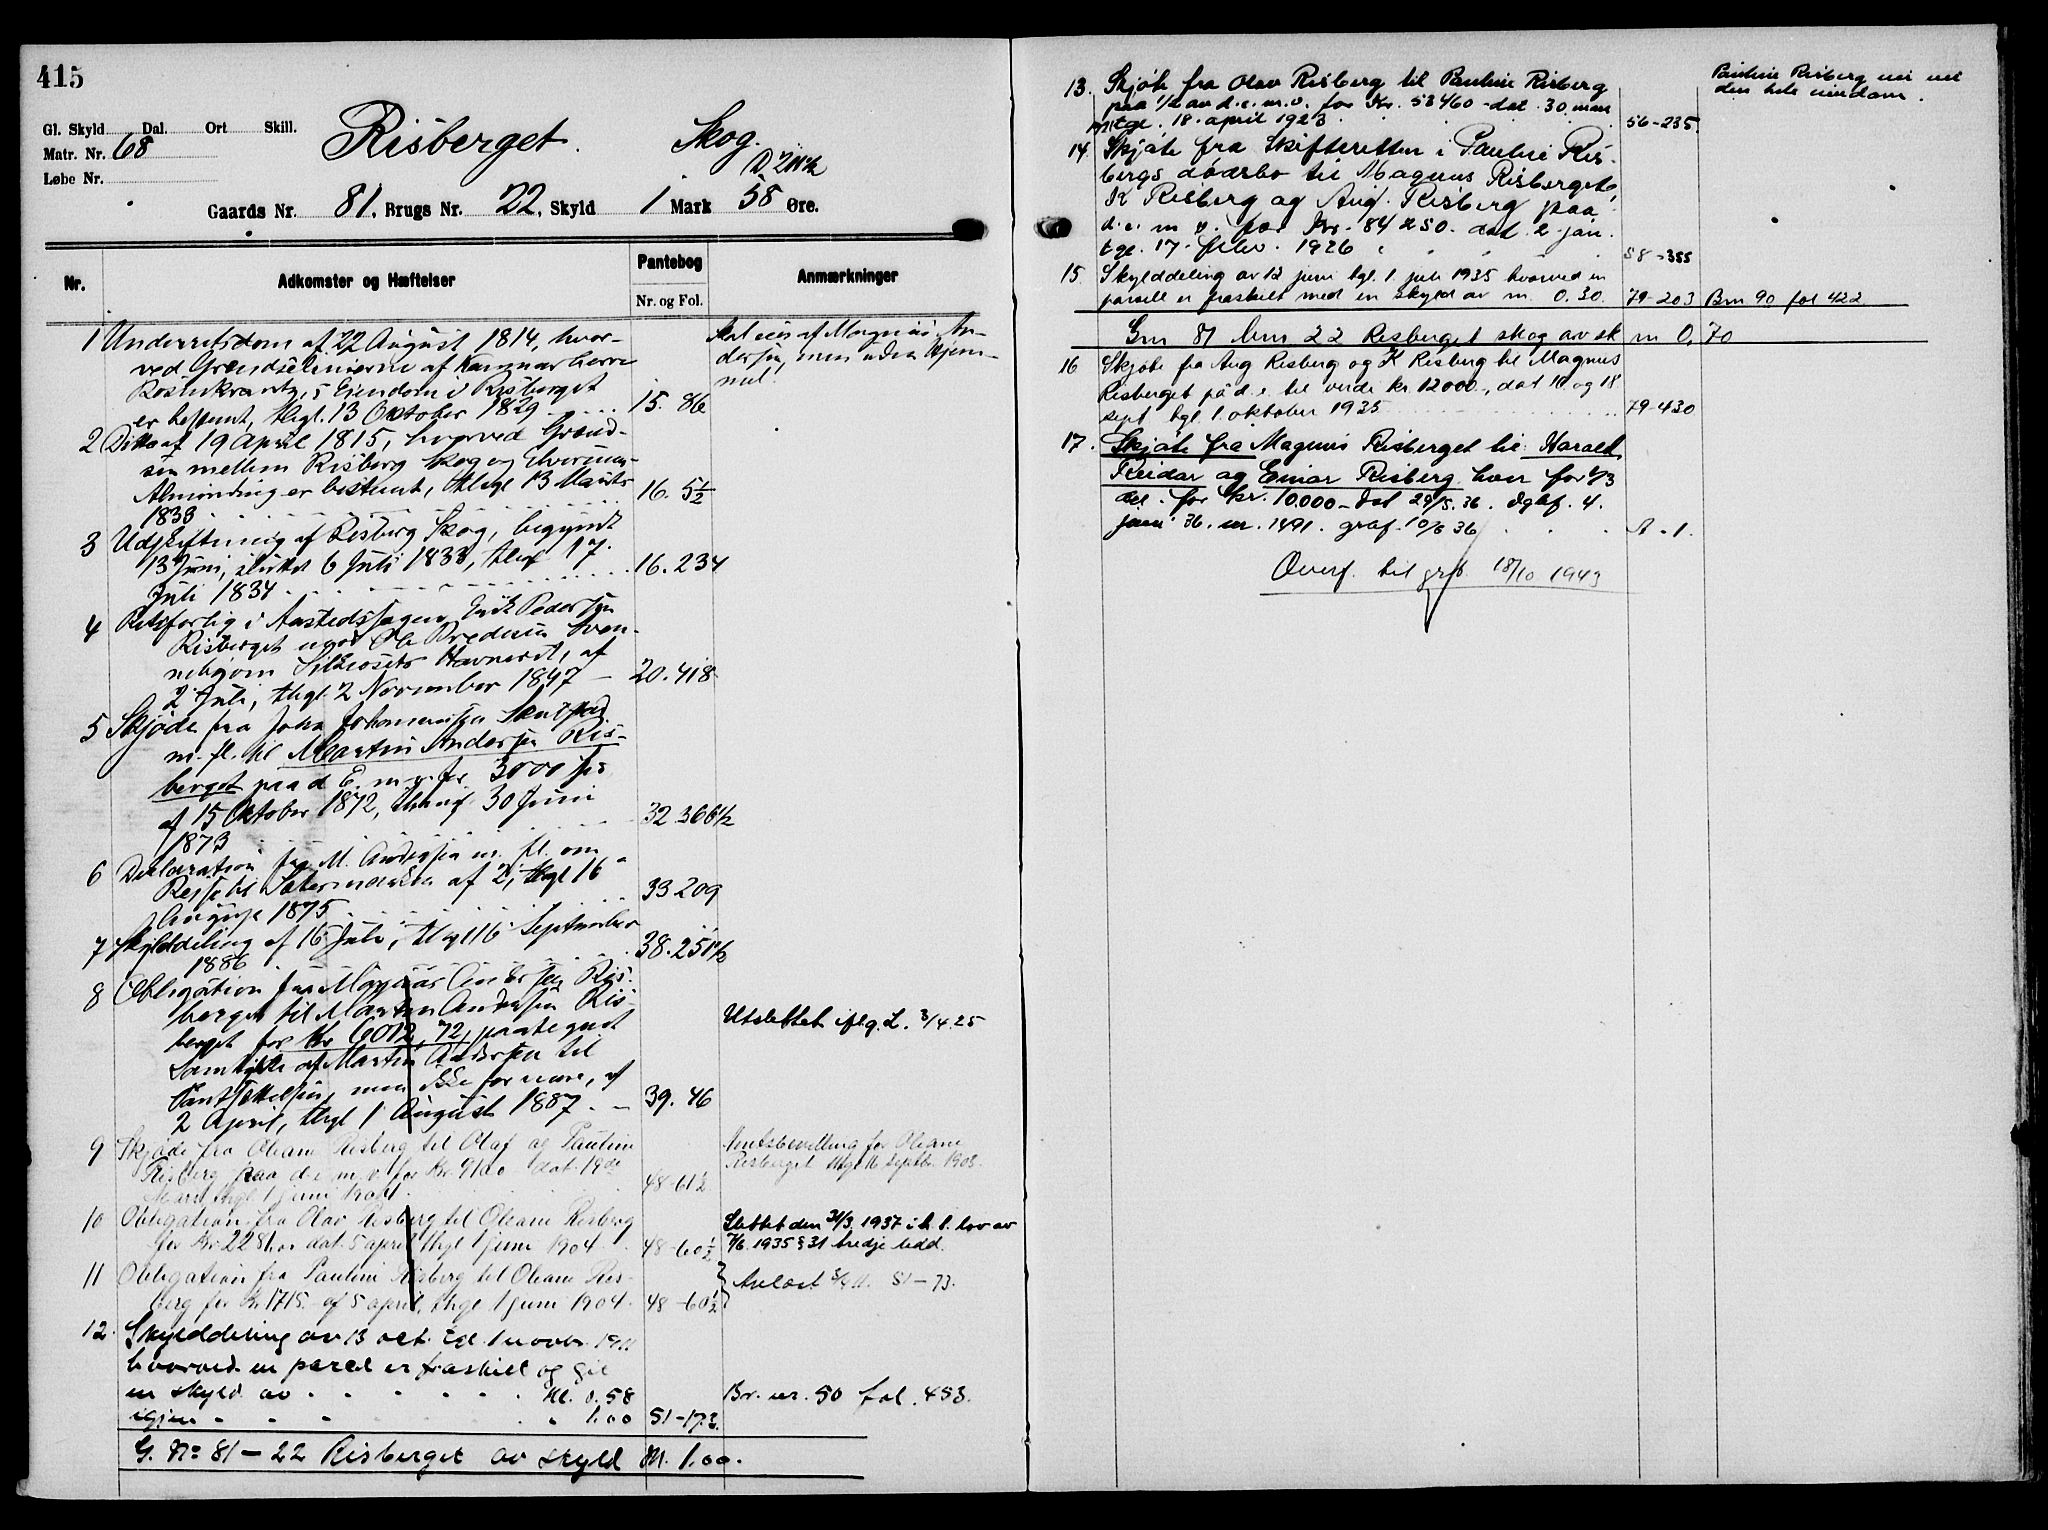 415
Gl. Skyld Dal. Ort Skill.
Matr. Nr. 68
Løbe Nr.
Risberget. Skog.
Gaards Nr. 81, Brugs Nr. 22, Skyld 1 Mark 58 Øre.
Nr. Adkomster og Hæftelser Pantebog Anmærkninger
Nr. og Fol.
1 Underretsdom af 22 August 1814, hvor-
ved Grændselinierne af Kammerherre
Rosenkrantz,s Eiendom i Risberget
er bestemt, thgl. 13 Oktober 1829 15. 86
Skal eies af Magnus An-
dersen, men uden Hjem-
mel!
2 Ditto af 19 April 1815, hvorved Grænd-
sen mellem Risberg Skog og Elverums-
Almending er bestemt, thlgt 13 Marts
1833 16. 5½
3 Udskiftning af Risberg Skog, begyndt
13 Juni, sluttet 6 Juli 1833, thgl 17.
Juli 1834 16. 234
4 Retsforlig i Aastedssagen Erik Pedersen
Risberget mod Ole Pedersen
Havneret, af
2 Juli, thgl. 2 November 1847 20. 418
5 Skjøde fra John Johannessen
m. fl. til Martin Andersen Ris-
berget paa d. E. m. v. for 3000 Sp
af 15 Oktober 1872, thingl 30 Juni
1873 32. 366½
6 Deklaration fra M. Andersen m. fl. om
af 2, thgl 16
August 1875 33 209
7 Skylddeling af 16 Juli, thgl 16 September
1886 38. 251½
8 Obligation fra Magnus Andersen Ris-
berget til Martin Andersen Ris-
berget for Kr 6012,72, paategnet
Samtykke af Martin Andersen til
Pantsættelsen, men ikke for mere, af
2 April, thgl 1 August 1887 39. 46
Utslettet iflg. L. 3/4.25
9 Skjøde fra Oleane Risberg til Olaf og Pauline
Risberg paa d. e. m. v. for Kr. 9100 dat. 19de
Mars, thgl 1 juni 1904. 48-61½
Amtsbevilling for Oleane
Risberget thgl 16 septbr. 1903.
10 Obligation fra Olav Risberg til Oleane Risberg
for Kr. 2281.00 dat. 5 april, thgl 1 juni 1904. 48-60½
Slettet den 31/3 1937 i h. t. lov av
7/6 1935 § 31 tredje ledd.
11 Obligation fra Pauline Risberg til Oleane Ris-
berg for Kr 1715.- af 5 april, thgl 1 juni 1904. 48-60½
Avlæst 51-73.
12. Skylddeling av 13 okt. tgl. 1 novbr. 1911
hvorved en parcel er fraskilt og git
en skyld av M. 0.58 Br. nr. 50 fol. 453.
igjen 1.00 51-173.
G. No 81-22 Risberget av skyld M. 1.00.
13. Skjøte fra Olav Risberg til Pauline Risberg
paa 1/2 av d. e. m. v. for Kr. 53460 dat. 30 mars
tgl. 18. april 1923 56-235.
Pauline Risberg
den hele eiendom.
14 Skjøte fra Skifteretten i Pauline Ris-
bergs dødsbo til Magnus Risberget,
K Risberg og Aug. Risberg paa
d. e. m v. for Kr. 84250. dat. 2 jan.
tgl. 17. febr. 1926 58-355
15 Skylddeling av 12 juni tgl. 1 juli 1935 hvorved en
parsell er fraskilt med en skyld av m 0.30. 79-203 Bnr 90 fol 422
Gnr 81 bnr 22 Risberget skog av sk m 0,70
16 Skjøte fra Aug Risberg og K Risberg til Magnus
Risberget på d. e. til verdi kr. 12000.-, dat 10 og 18
sept tgl 1. oktober 1935 79-430
17. Skjøte fra Magnus Risberget til Harald,
Reidar og Einar Risberg hver for 1/3
del. for kr. 10.000 - dat 29/5. 36. dgbf. 4.
juni 36. nr. 1491. grbf. 10/6 36 A-1.
Overf. til grb. 18/10 1943